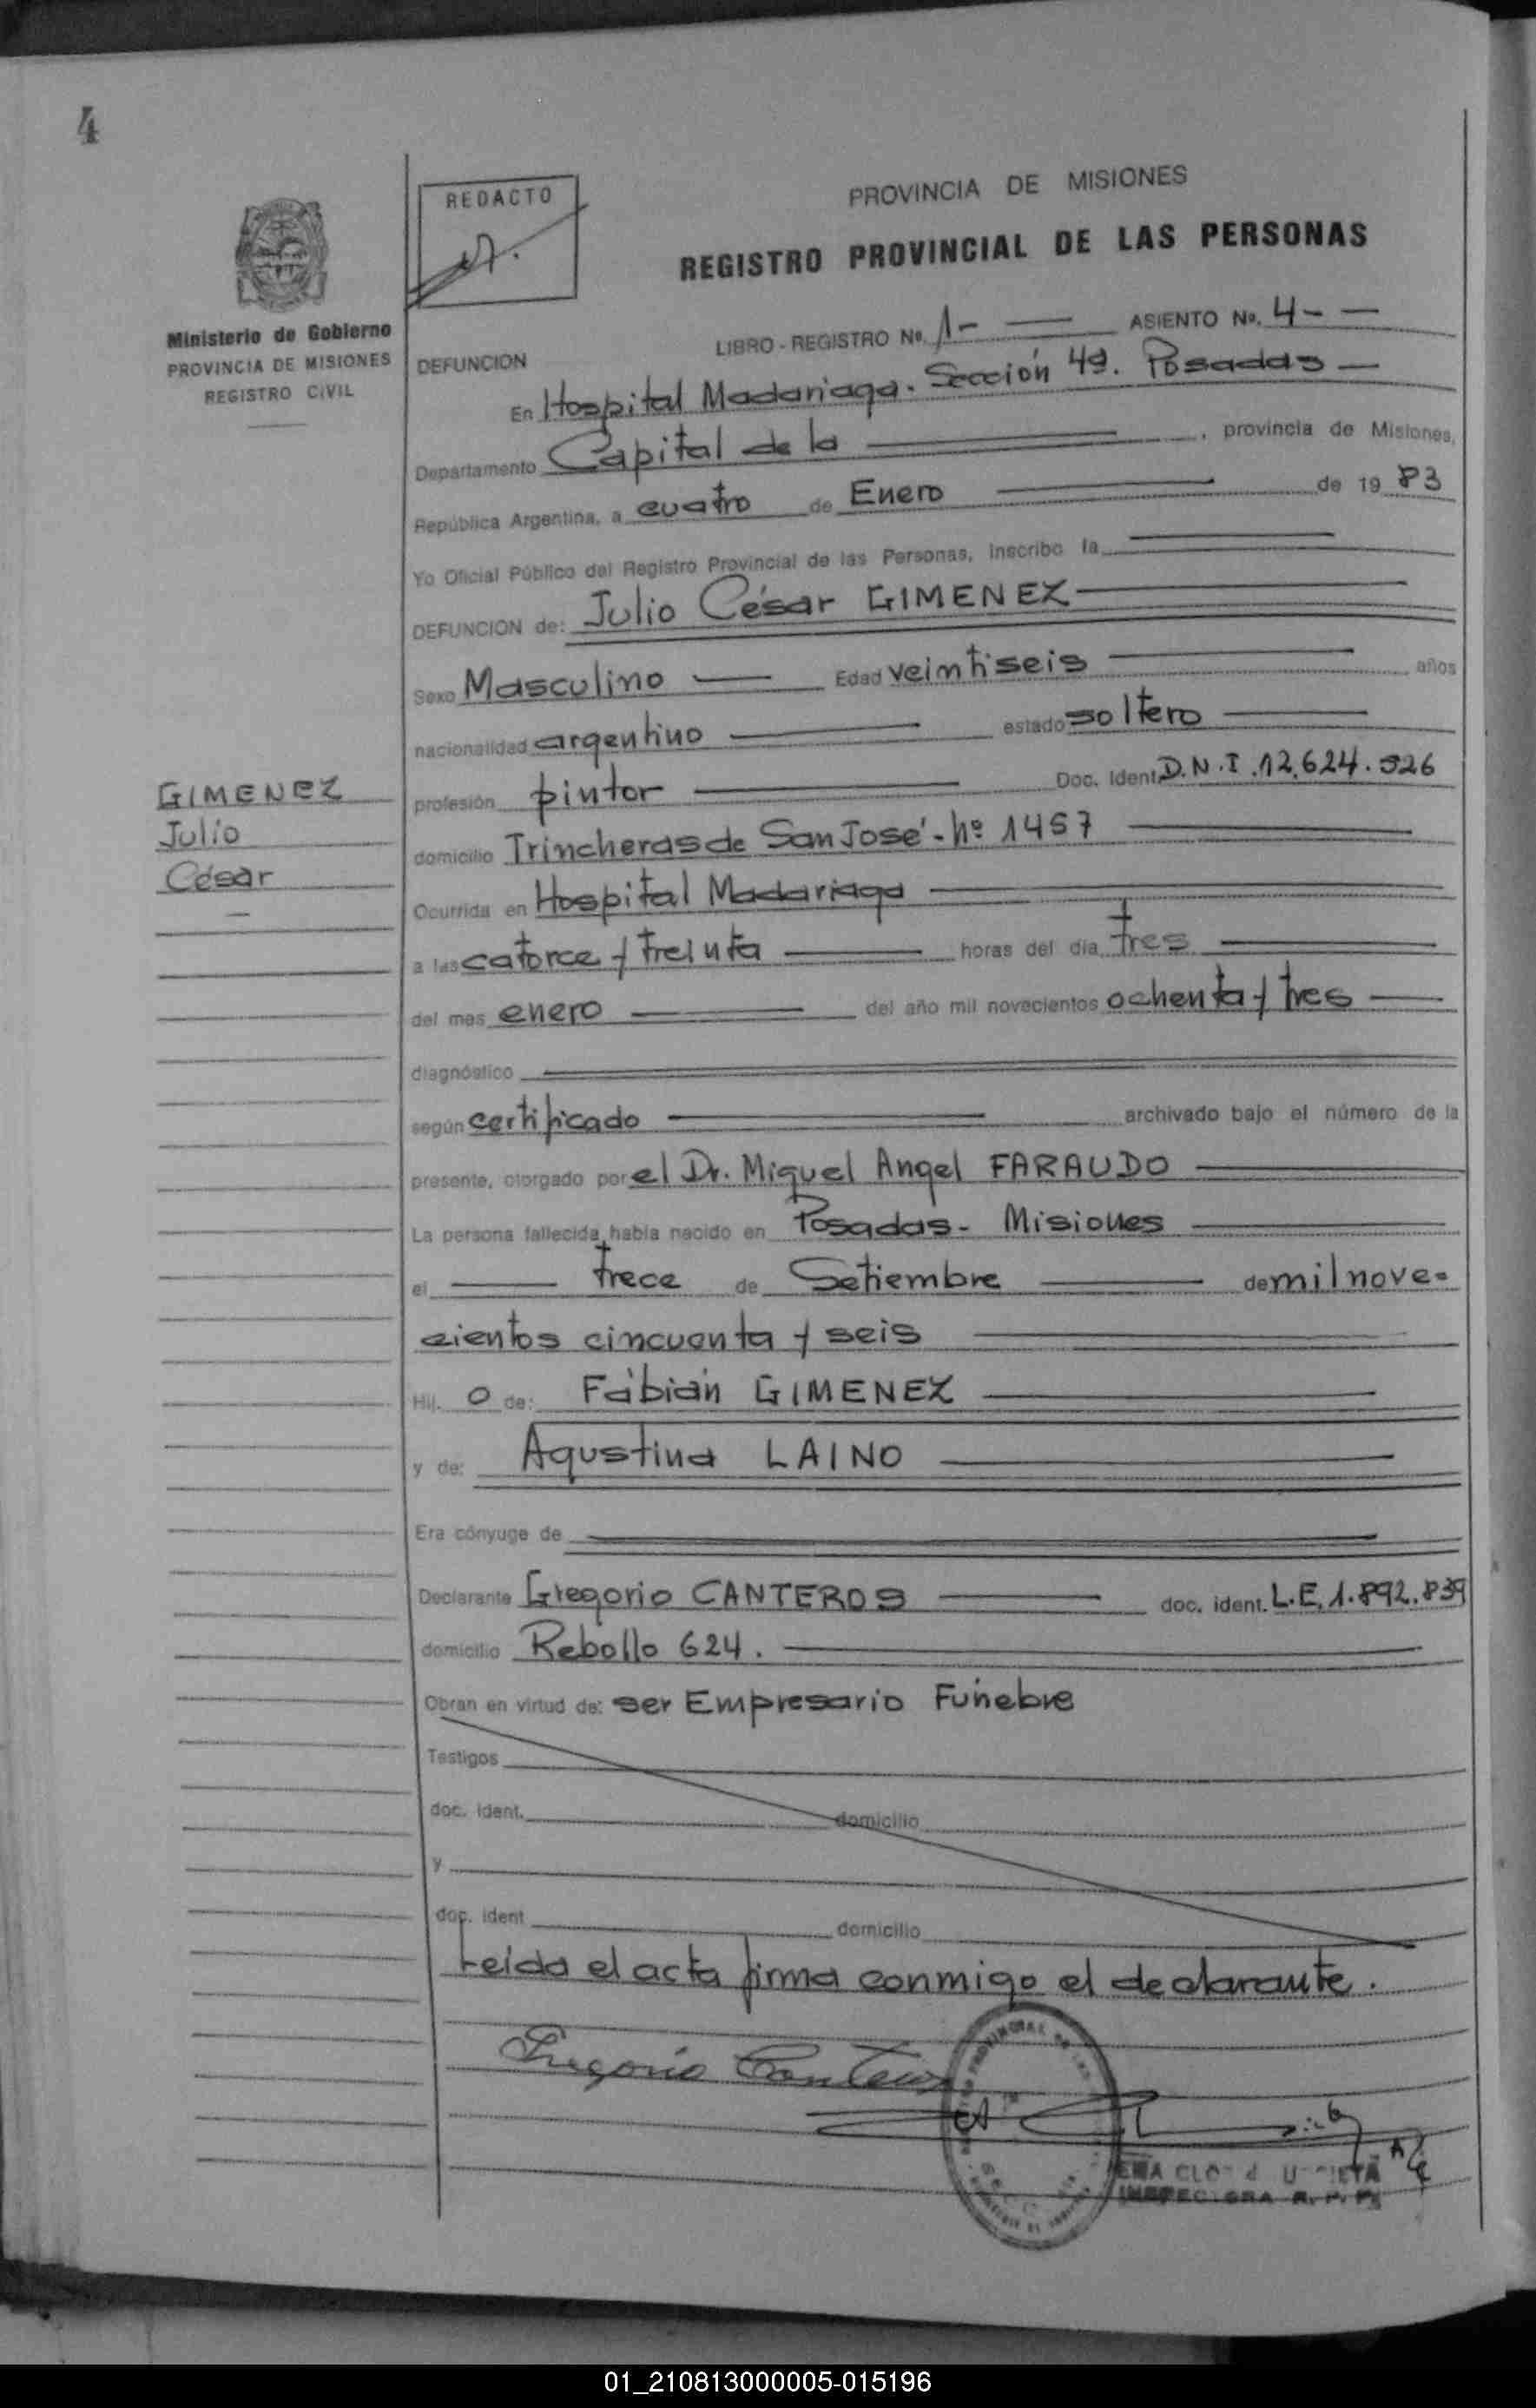 4
REDACTO
PROVINCIA DE MISIONES
REGISTRO PROVINCIAL DE LAS PERSONAS
Ministerio de Gobierno
PROVINCIA DE MISIONES
REGISTRO CIVIL
LIBRO - REGISTRO No. 1- ASIENTO No. 4-
DEFUNCION
En Hospital Madariaga. Sección 4a. Posadas
Departamento Capital de la , provincia de Misiones,
República Argentina, a cuatro de Enero de 1983
Yo Oficial Público del Registro Provincial de las Personas, inscribo la
DEFUNCION de: Julio César GIMENEZ
Sexo Masculino Edad veintiseis años
nacionalidad argentino estado soltero
profesión pintor Doc. Ident D.N.I. 12.624.526
GIMENEZ
Julio
César
domicilio Trincheras de San José - nº 1457
Ocurrida en Hospital Madariaga
a las catorce y treinta horas del día tres
del mes enero del año mil novecientos ochenta y tres
diagnóstico
según certificado archivado bajo el número de la
presente, otorgado por el Dr. Miguel Angel FARAUDO
La persona fallecida había nacido en Posadas - Misiones
el trece de Setiembre de mil nove-
cientos cincuenta y seis
Hij. o de: Fabián GIMENEZ
y de: Agustina LAINO
Era cónyuge de
Declarante Gregorio CANTEROS doc. ident. L.E. 1.892.839
domicilio Rebollo 624.
Obran en virtud de: ser Empresario Fúnebre
Testigos
doc. ident. domicilio
y
doc. ident domicilio
Leída el acta firma conmigo el declarante.
Gregorio Canteros
01_210813000005-015196